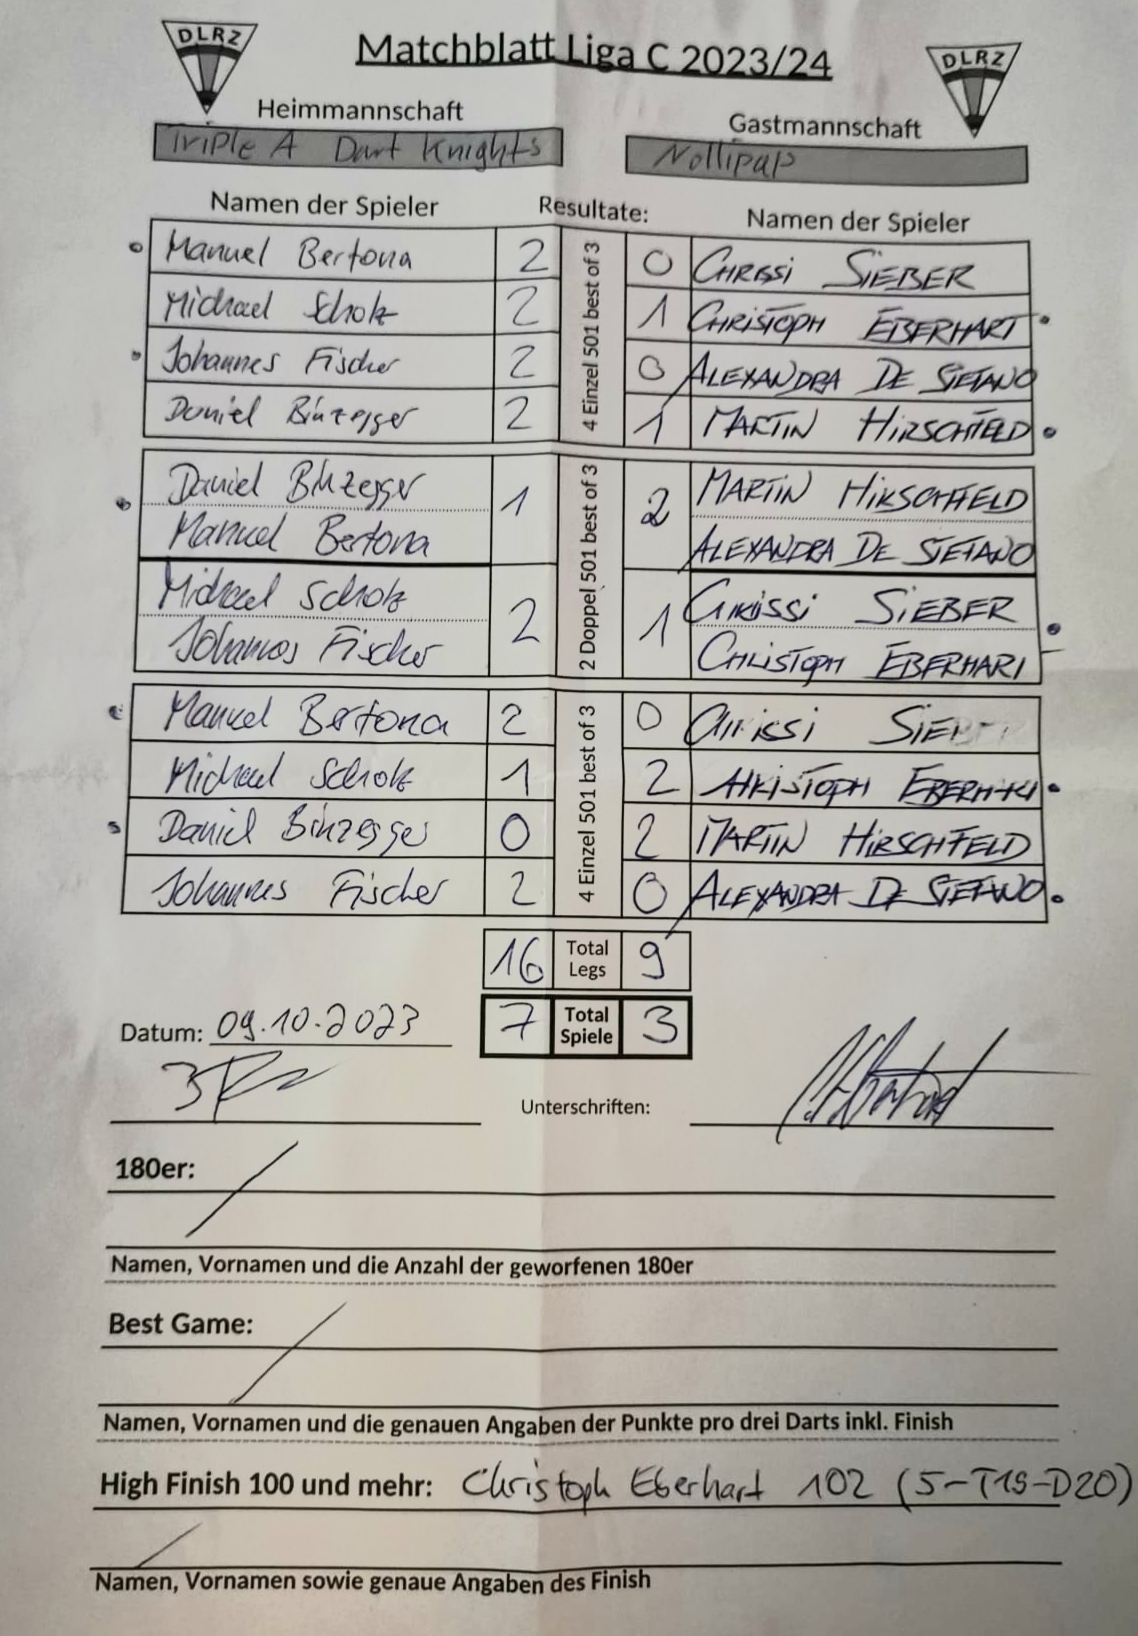 DLRZ Matchblatt Liga C 2023/24 DLRZ
Heimmannschaft Gastmannschaft
Triple A Dart Knights Nollipap
Namen der Spieler Resultate: Namen der Spieler
Manuel Bertona 2 0 CHRISSI SIEBER
Michael Scholz 2 1 CHRISTOPH EBERHART
Johannes Fischer 2 0 ALEXANDRA DE STEFANO
Daniel Binzegger 2 1 MARTIN HIRSCHFELD
4 Einzel 501 best of 3
Daniel Binzegger 1 2 MARTIN HIRSCHFELD
Manuel Bertona ALEXANDRA DE STEFANO
Michael Scholz 2 1 CHRISSI SIEBER
Johannes Fischer CHRISTOPH EBERHART
2 Doppel 501 best of 3
Manuel Bertona 2 0 CHRISSI SIEBER
Michael Scholz 1 2 CHRISTOPH EBERHART
Daniel Binzegger 0 2 MARTIN HIRSCHFELD
Johannes Fischer 2 0 ALEXANDRA DE STEFANO
4 Einzel 501 best of 3
16 Total Legs 9
7 Total Spiele 3
Datum: 09.10.2023
Unterschriften:
180er:
Namen, Vornamen und die Anzahl der geworfenen 180er
Best Game:
Namen, Vornamen und die genauen Angaben der Punkte pro drei Darts inkl. Finish
High Finish 100 und mehr: Christoph Eberhart 102 (5-T19-D20)
Namen, Vornamen sowie genaue Angaben des Finish